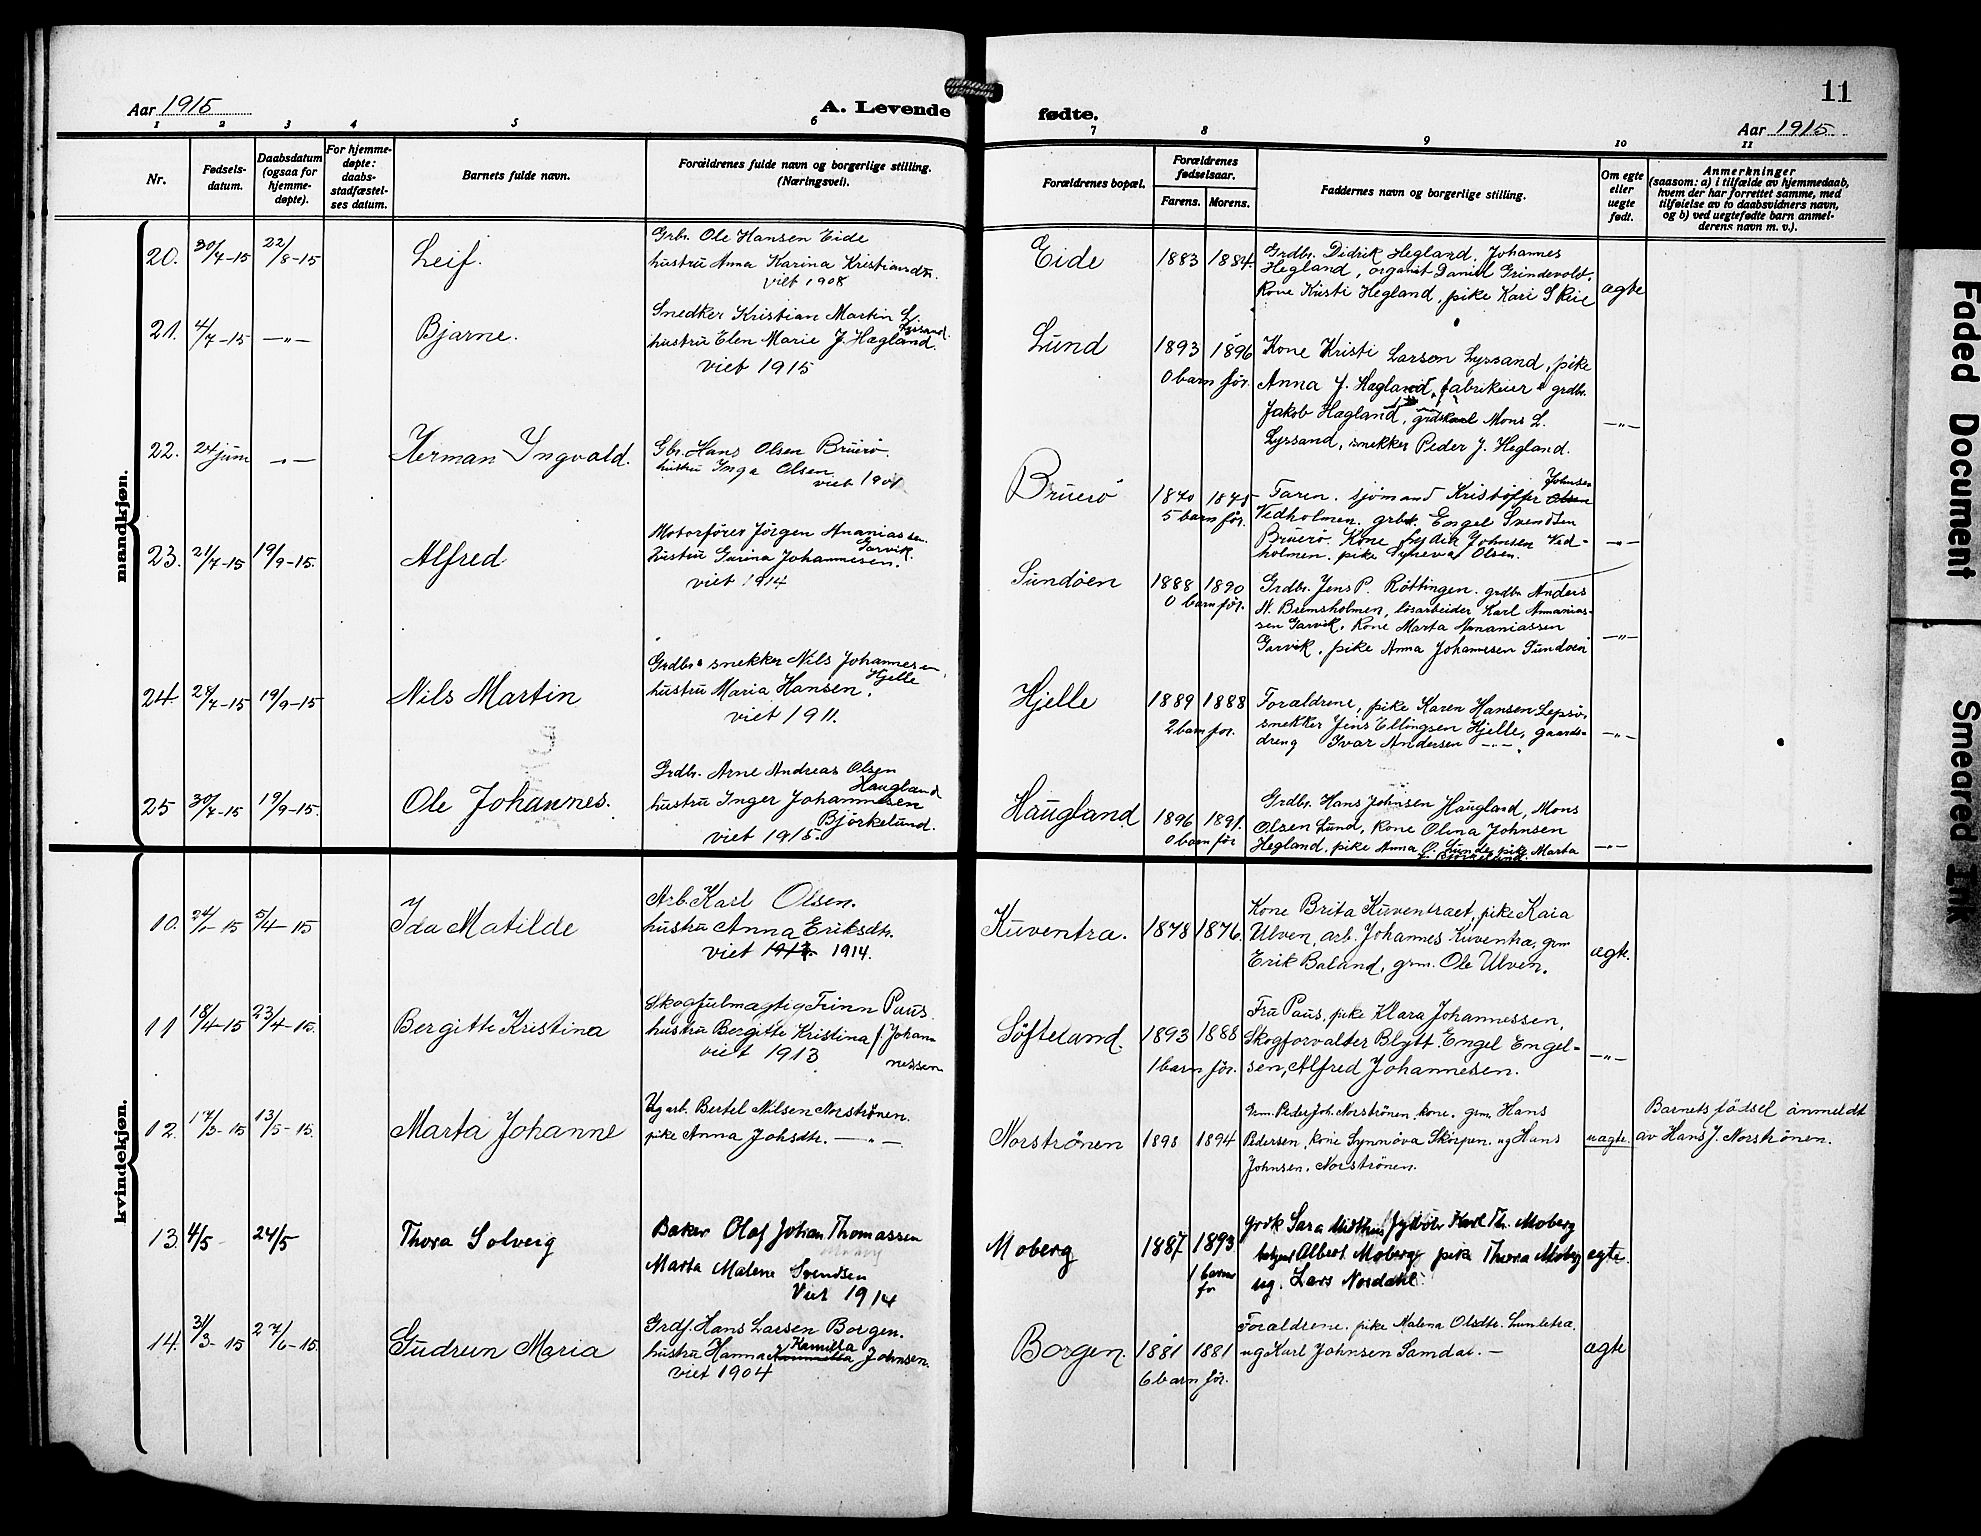 11
Aar 1915
A. Levende
fødte.
Aar 1915
1 2 3 4 5 6 7 8 9 10 11
Nr.
Fødsels-
datum.
Daabsdatum
(ogsaa for
hjemme-
døpte).
For hjemme-
døpte:
daabs-
stadfæstel-
ses datum.
Barnets fulde navn.
Forældrenes fulde navn og borgerlige stilling.
(Næringsvei).
Forældrenes bopæl.
Forældrenes
fødselsaar.
Farens. Morens.
Faddernes navn og borgerlige stilling.
Om egte
eller
uegte
født.
Anmerkninger
(saasom: a) i tilfælde av hjemmedaab,
hvem der har forrettet samme, med
tilføielse av to daabsvidners navn,
og b) ved uegtefødte barn anmel-
derens navn m. v.).
mandkjøn.
20. 30/7-15 22/8-15 Leif.
Grbr. Ole Hansen Eide
hustru Anna Karina Kristiansdtr.
viet 1908
Eide 1883 1884.
Grdbr. Didrik Hegland, Johannes
Hegland, organist Daniel Grindevold,
Kone Kristi Hegland, pike Kari Skeie
ægte
21. 4/7-15 -"- Bjarne.
Snedker Kristian Martin L.
Lyssand
hustru Elen Marie J. Hægland.
viet 1915
Lund 1893 1896
0 barn før.
Kone Kristi Larsen Lyssand, pike
Anna J. Hægland, fabrikeier & grdbr.
Jakob Hagland, Mons L.
Lyssand, snekker Peder J. Hegland.
-"-
22. 24 juni -"- Herman Ingvald.
Gbr. Hans Olsen Bruerø
hustru Inga Olsen
viet 1901
Bruerø 1870 1875
5 barn før.
Faren. sjømand Kristoffer Johnsen
Vedholmen. grbr. Engel Svendsen
Bruerø. Kone Johnsen Ved-
holmen. pike Syneva Olsen.
-"-
23. 21/7-15 19/9-15. Alfred
Motorfører Jørgen Ananiassen
Garvik.
hustru Gurina Johannesen.
viet 1914
Sundøen 1888 1890
0 barn før.
Grdbr. Jens P. Røttingen. grdbr Anders
N. Bremsholmen, løsarbeider Karl Annanias-
sen Garvik, Kone Marta Ananiassen
Garvik, pike Anna Johannesen Sundøen
-"-
24. 27/7-15 19/9-15 Nils Martin
Grdbr & snekker Nils Johannesen
Hjelle
hustru Maria Hansen.
viet 1911.
Hjelle 1889 1888
2 barn før.
Forældrene, pike Karen Hansen Lepsø,
snekker Jens Ellingsen Hjelle, gaards-
dreng Ivar Andersen -"-
-"-
25 30/7-15 19/9-15. Ole Johannes.
Grdbr. Arne Andreas Olsen
Haugland
hustru Inger Johannesen
Bjørkelund.
viet 1915
Haugland 1896 1891.
0 barn før
Grdbr. Hans Johnsen Haugland, Mons
Olsen Lund, Kone Olina Johnsen
Hegland, pike Anna O. Lunde, pike Marta
J. Bjørkelund.
-"-
kvindekjøn.
10. 24/1-15 5/4-15 Ida Matilde
Arb. Karl Olsen.
hustru Anna Eriksdtr.
viet 1913 1914.
Kuventra. 1878 1876.
Kone Brita Kuventraet, pike Kaia
Ulven, arb. Johannes Kuventræ, grm
Erik Baland, grm. Ole Ulven.
ægt.
11 18/4-15 23/4-15. Bergitte Kristina
Skogfulmægtig Finn Paus.
hustru Bergitte Kristina / Johan-
nessen
viet 1913
Søfteland. 1893 1888
1 barn før.
Fru Paus, pike Klara Johannessen,
Skogforvalter Blytt. Engel Engel-
sen, Alfred Johannesen.
-"-
12. 17/3-15 13/5-15. Marta Johanne
Ug arb. Bertel Nilsen Norstrønen.
pike Anna Johsdtr. -"-
Norstrønen 1898 1894
Grm. Peder Joh. Norstrønen, kone, grm. Hans
Pedersen, kone Synnøva Skorpen. ug Hans
Johnsen. Norstrønen.
uægte.
Barnets fødsel anmeldt
av Hans J. Norstrønen.
13. 4/5 24/5 Thora Solveig
Baker Olaf Johan Thomassen
Moberg
Marta Malene Svendsen
Viet 1914
Moberg 1887 1893
1 barn
før
Grdk Sara Midthus Karl Th. Moberg
Albert Moberg pike Thora Moberg
ug. Lars Nordahl
ægte.
14. 31/3-15 27/6-15. Gudrun Maria
Grdf. Hans Larsen Borgen.
Kamilla
hustru Hanna Johnsen.
viet 1904
Borgen. 1881 1881
6 barn før.
Forældrene, pike Malena Olsdtr. Lunletra.
ug Karl Johnsen Samdal. -
ægte
Faded Document
Smeared Ink